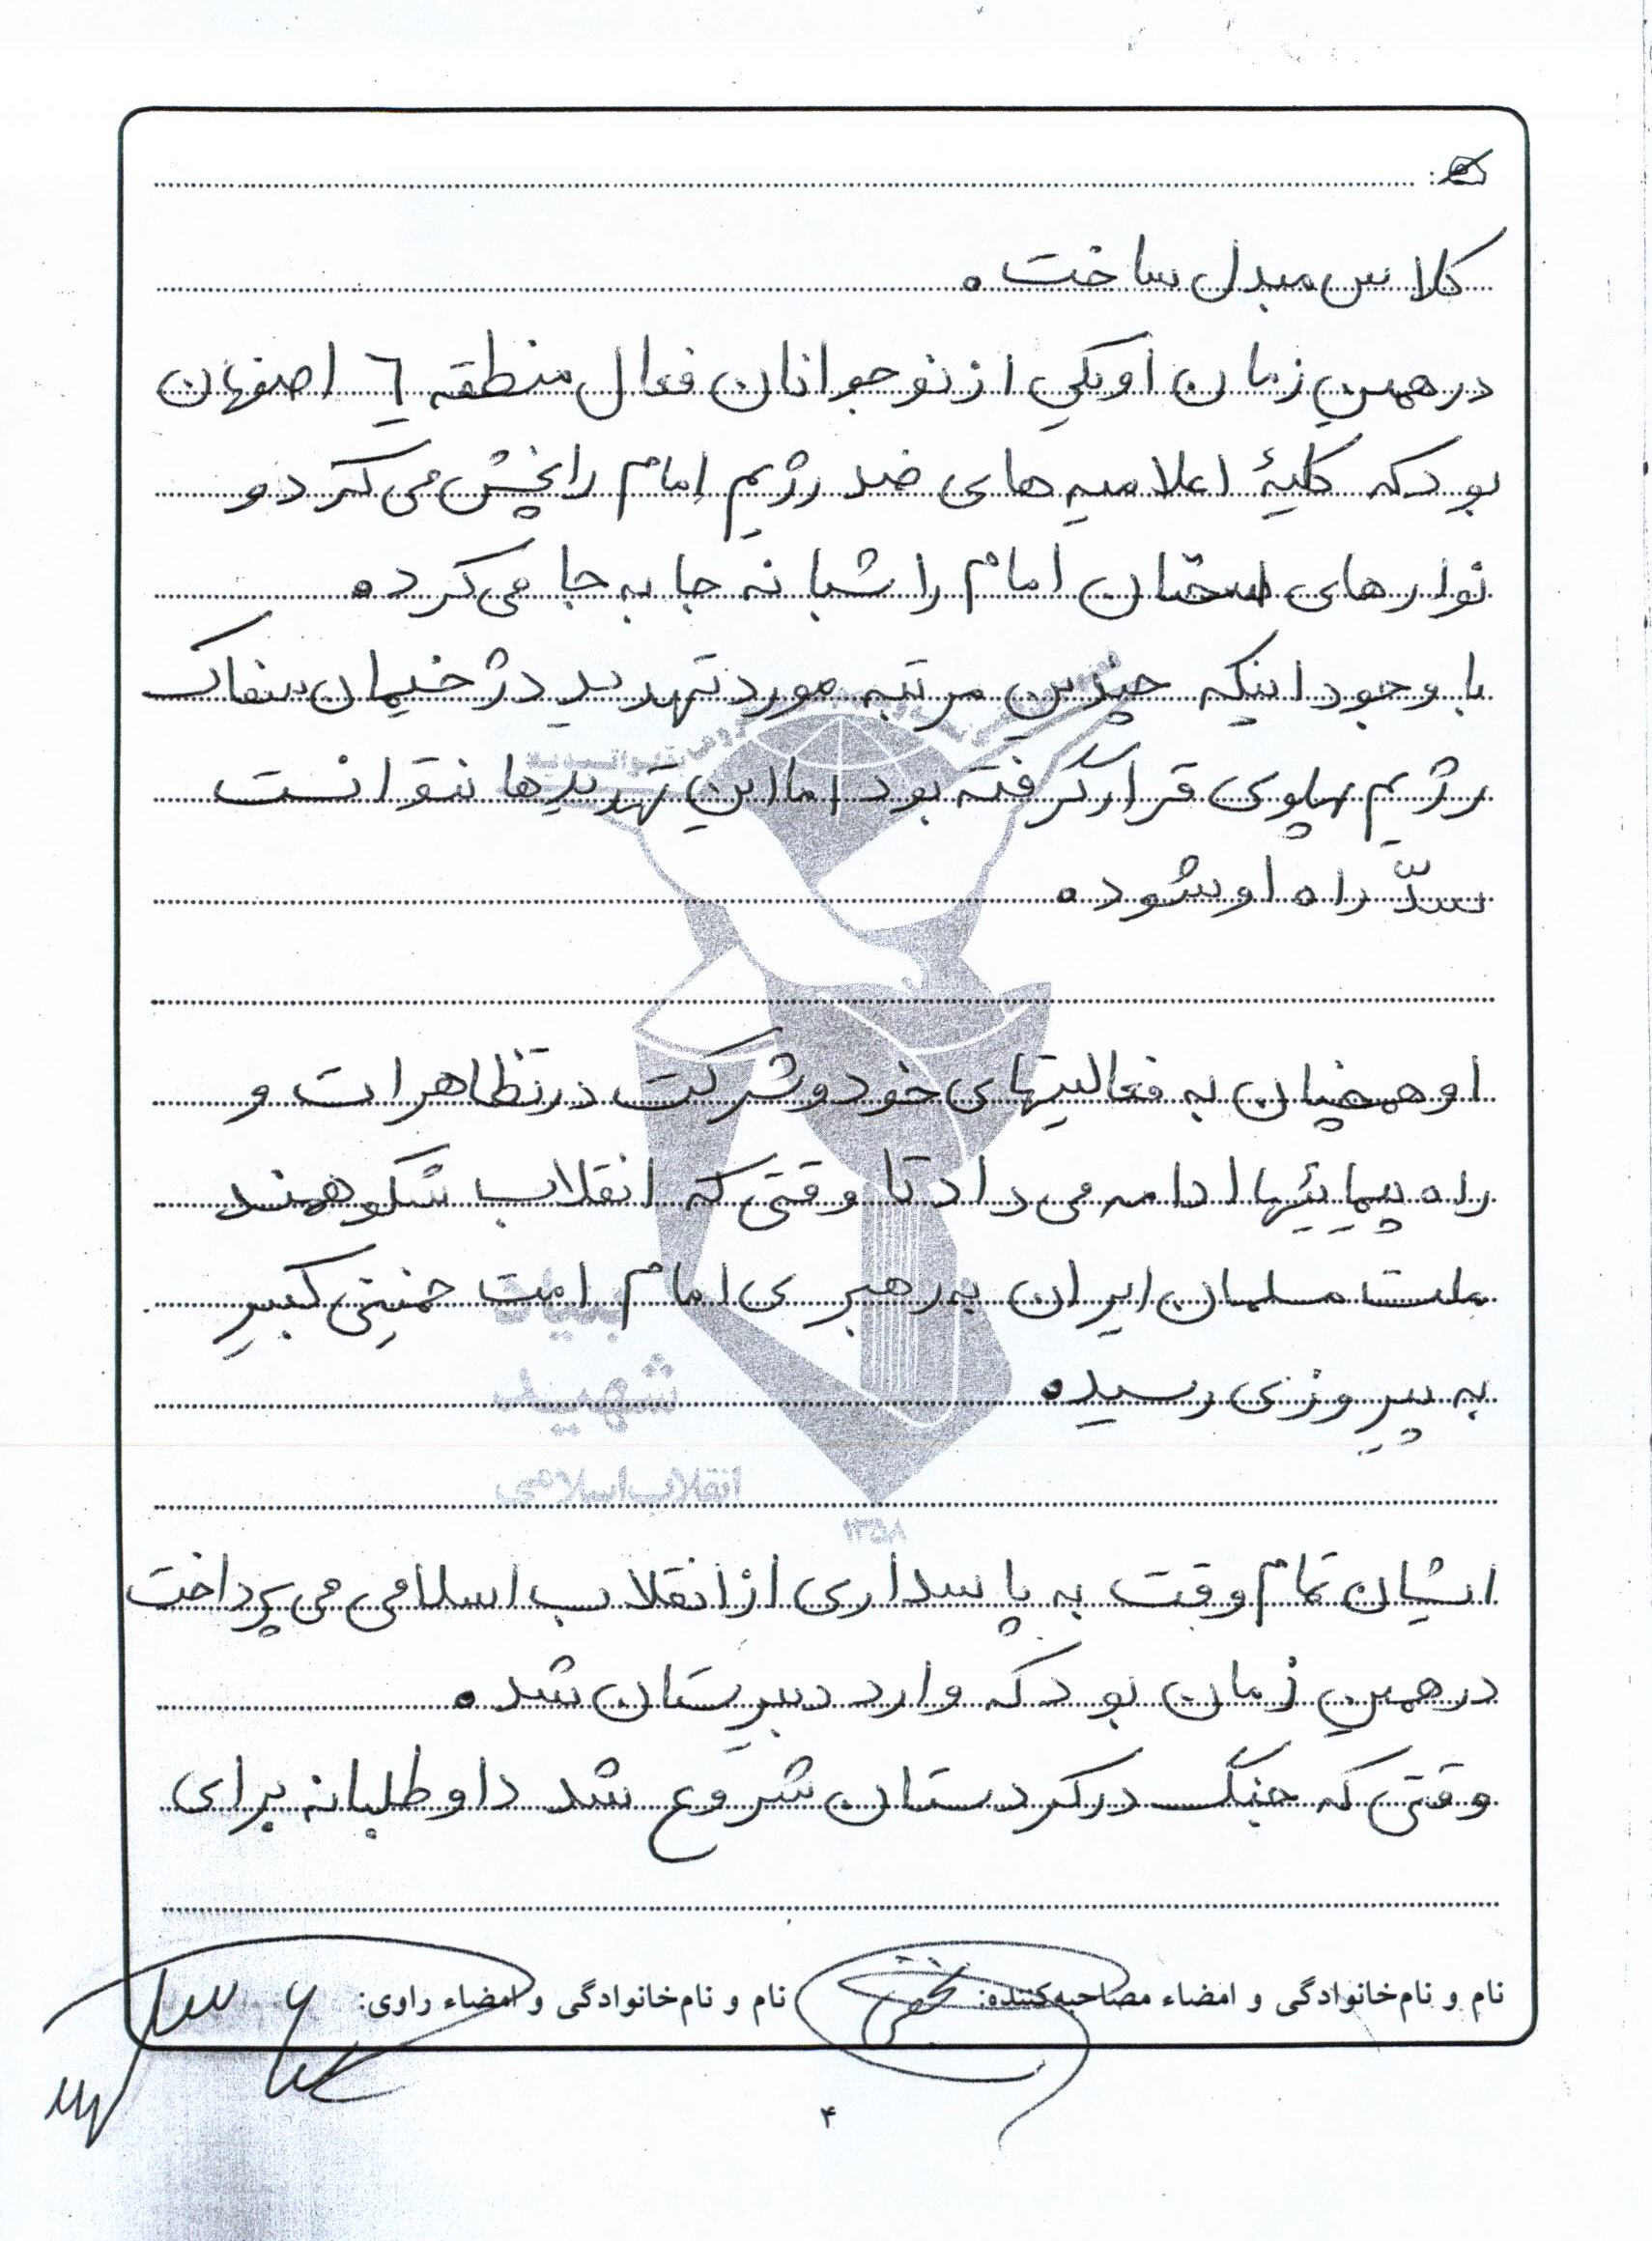 کلاس مبدل ساخت.
در همین زمان او یکی از نوجوانان فعال منطقه ٦ اصفهان
بود که کلیهٔ اعلامیه های ضد رژیم امام را پخش می کرد و
نوارهای سخنان امام را شبانه جا به جا می کرد.
با وجود اینکه چندین مرتبه مورد تهدید دژخیمان سفاک
رژیم پهلوی قرار گرفته بود اما این تهدیدها نتوانست
سدّ راه او شود.
او همچنان به فعالیتهای خود و شرکت در تظاهرات و
راه پیمائیها ادامه می داد تا وقتی که انقلاب شکوهمند
ملت مسلمان ایران به رهبری امام امت خمینی کبیر
به پیروزی رسید.
بنیاد
شهید
انقلاب اسلامی
۱۳۵۸
ایشان تمام وقت به پاسداری از انقلاب اسلامی می پرداخت
در همین زمان بود که وارد دبیرستان شد.
وقتی که جنگ در کردستان شروع شد داوطلبانه برای
نام و نام‌خانوادگی و امضاء مصاحبه‌کننده: نام و نام‌خانوادگی و امضاء راوی:
۴